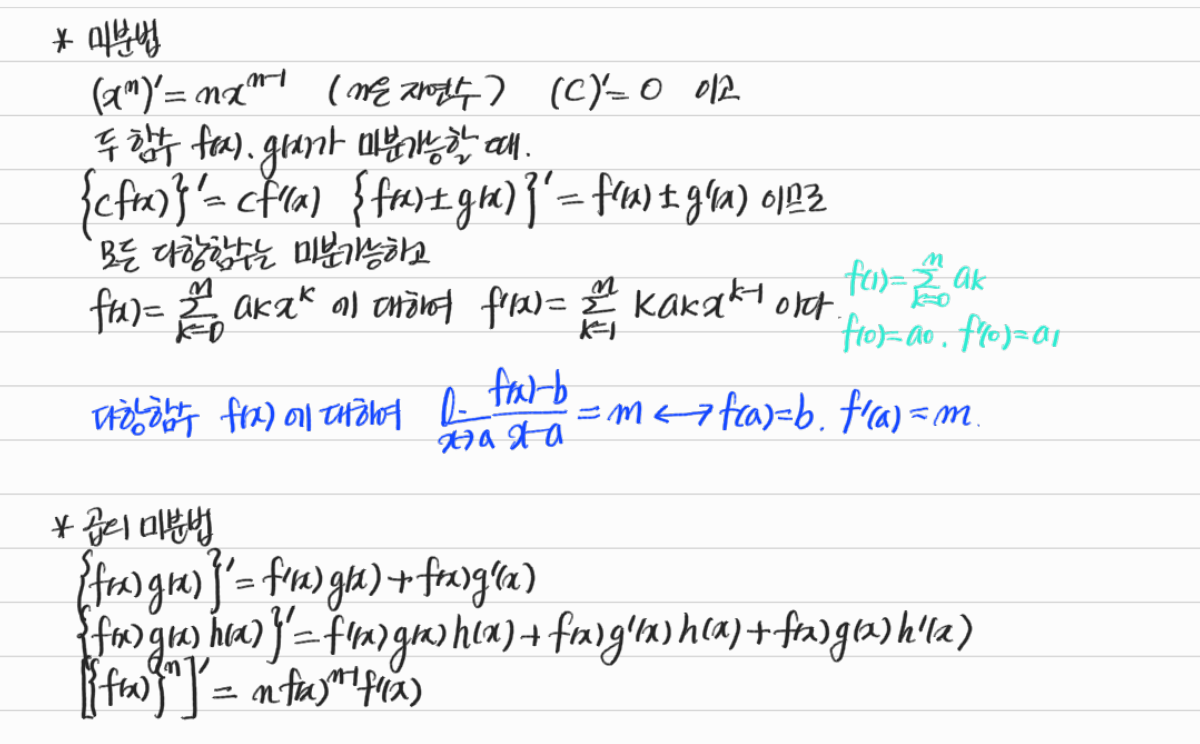 * 미분법
(xⁿ)′ = nxⁿ⁻¹ (n은 자연수) (C)′ = 0 이고
두 함수 f(x), g(x)가 미분가능할 때.
{cf(x)}′ = cf′(x) {f(x)±g(x)}′ = f′(x)±g′(x) 이므로
모든 다항함수는 미분가능하고
f(x) = ∑_{k=0}^{n} aₖxᵏ 에 대하여 f′(x) = ∑_{k=1}^{n} kaₖxᵏ⁻¹ 이다.
f(1) = ∑_{k=0}^{n} aₖ
f(0) = a₀. f′(0) = a₁
다항함수 f(x)에 대하여 l._{x→a} (f(x)-b)/(x-a) = m ↔ f(a)=b. f′(a)=m.
* 곱의 미분법
{f(x)g(x)}′ = f′(x)g(x)+f(x)g′(x)
{f(x)g(x)h(x)}′ = f′(x)g(x)h(x)+f(x)g′(x)h(x)+f(x)g(x)h′(x)
[{f(x)}ⁿ]′ = nf(x)ⁿ⁻¹f′(x)